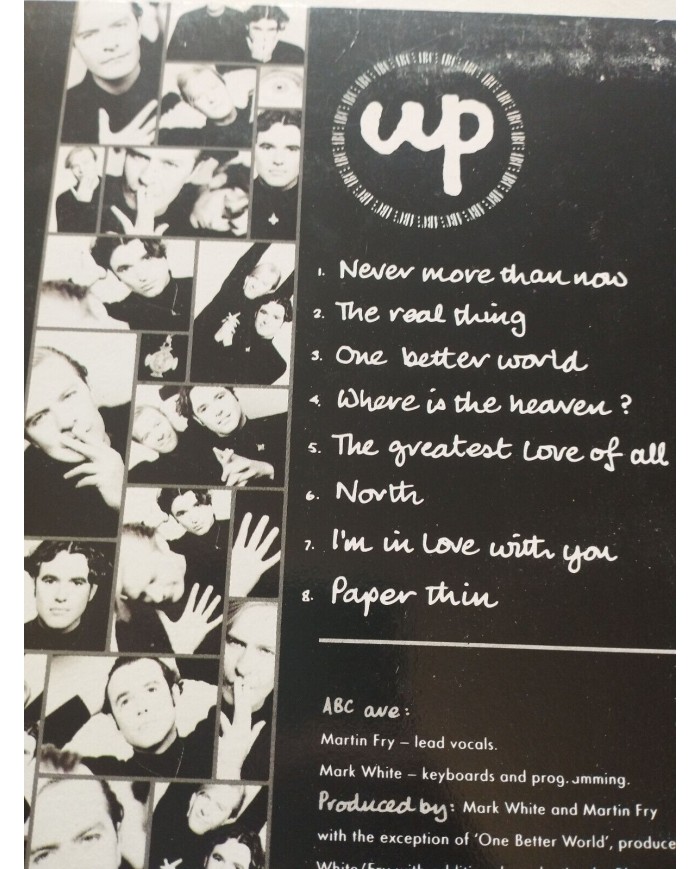 up
1. Never more than now
2. The real thing
3. One better world
4. Where is the heaven?
5. The greatest love of all
6. North
7. I'm in love with you
8. Paper thin
ABC are:
Martin Fry – lead vocals.
Mark White – keyboards and prog mming.
Produced by: Mark White and Martin Fry
with the exception of 'One Better World', produce
White/Fry with